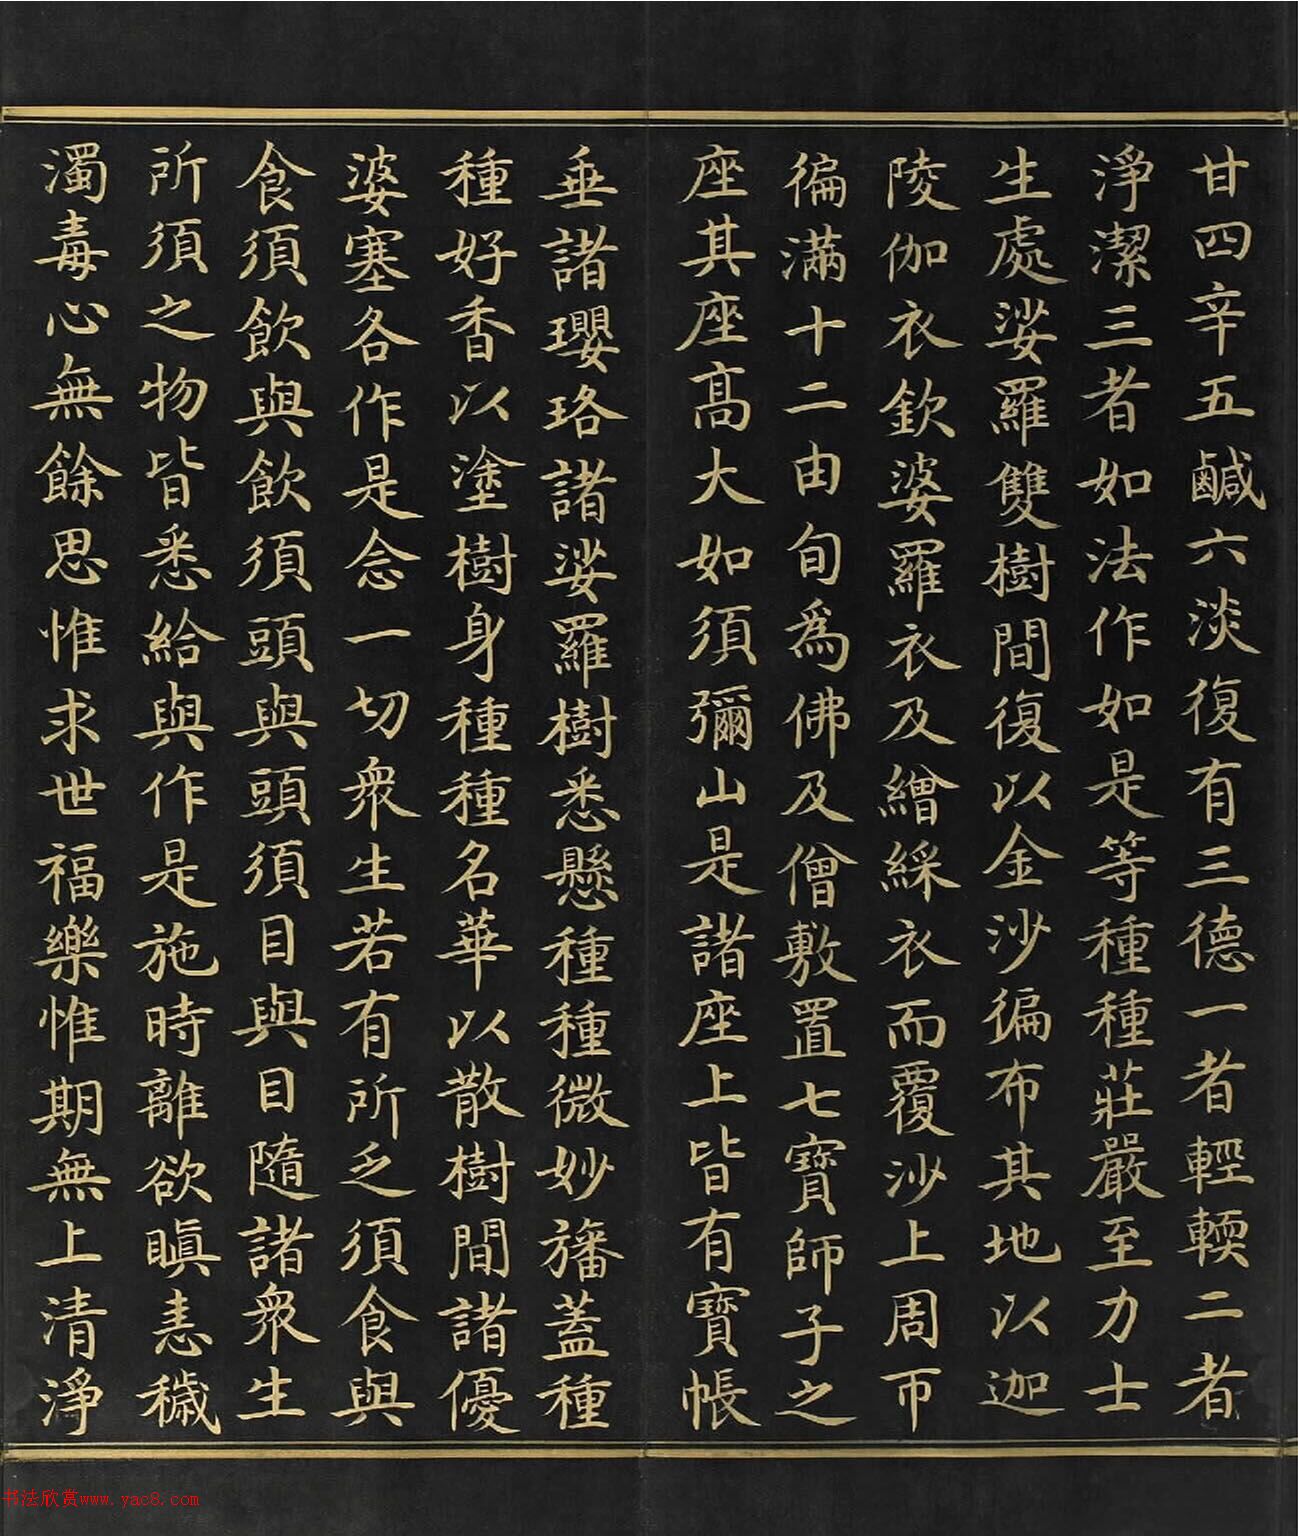 甘四辛五鹹六淡復有三德一者輕輭二者
淨潔三者如法作如是等種種莊嚴至力士
生處娑羅雙樹間復以金沙徧布其地以迦
陵伽衣欽婆羅衣及繒綵衣而覆沙上周帀
徧滿十二由旬爲佛及僧敷置七寶師子之
座其座高大如須彌山是諸座上皆有寶帳
垂諸瓔珞諸娑羅樹悉懸種種微妙旛蓋種
種好香以塗樹身種種名華以散樹間諸優
婆塞各作是念一切衆生若有所乏須食與
食須飲與飲須頭與頭須目與目隨諸衆生
所須之物皆悉給與作是施時離欲瞋恚穢
濁毒心無餘思惟求世福樂惟期無上清淨
书法欣赏www.yac8.com